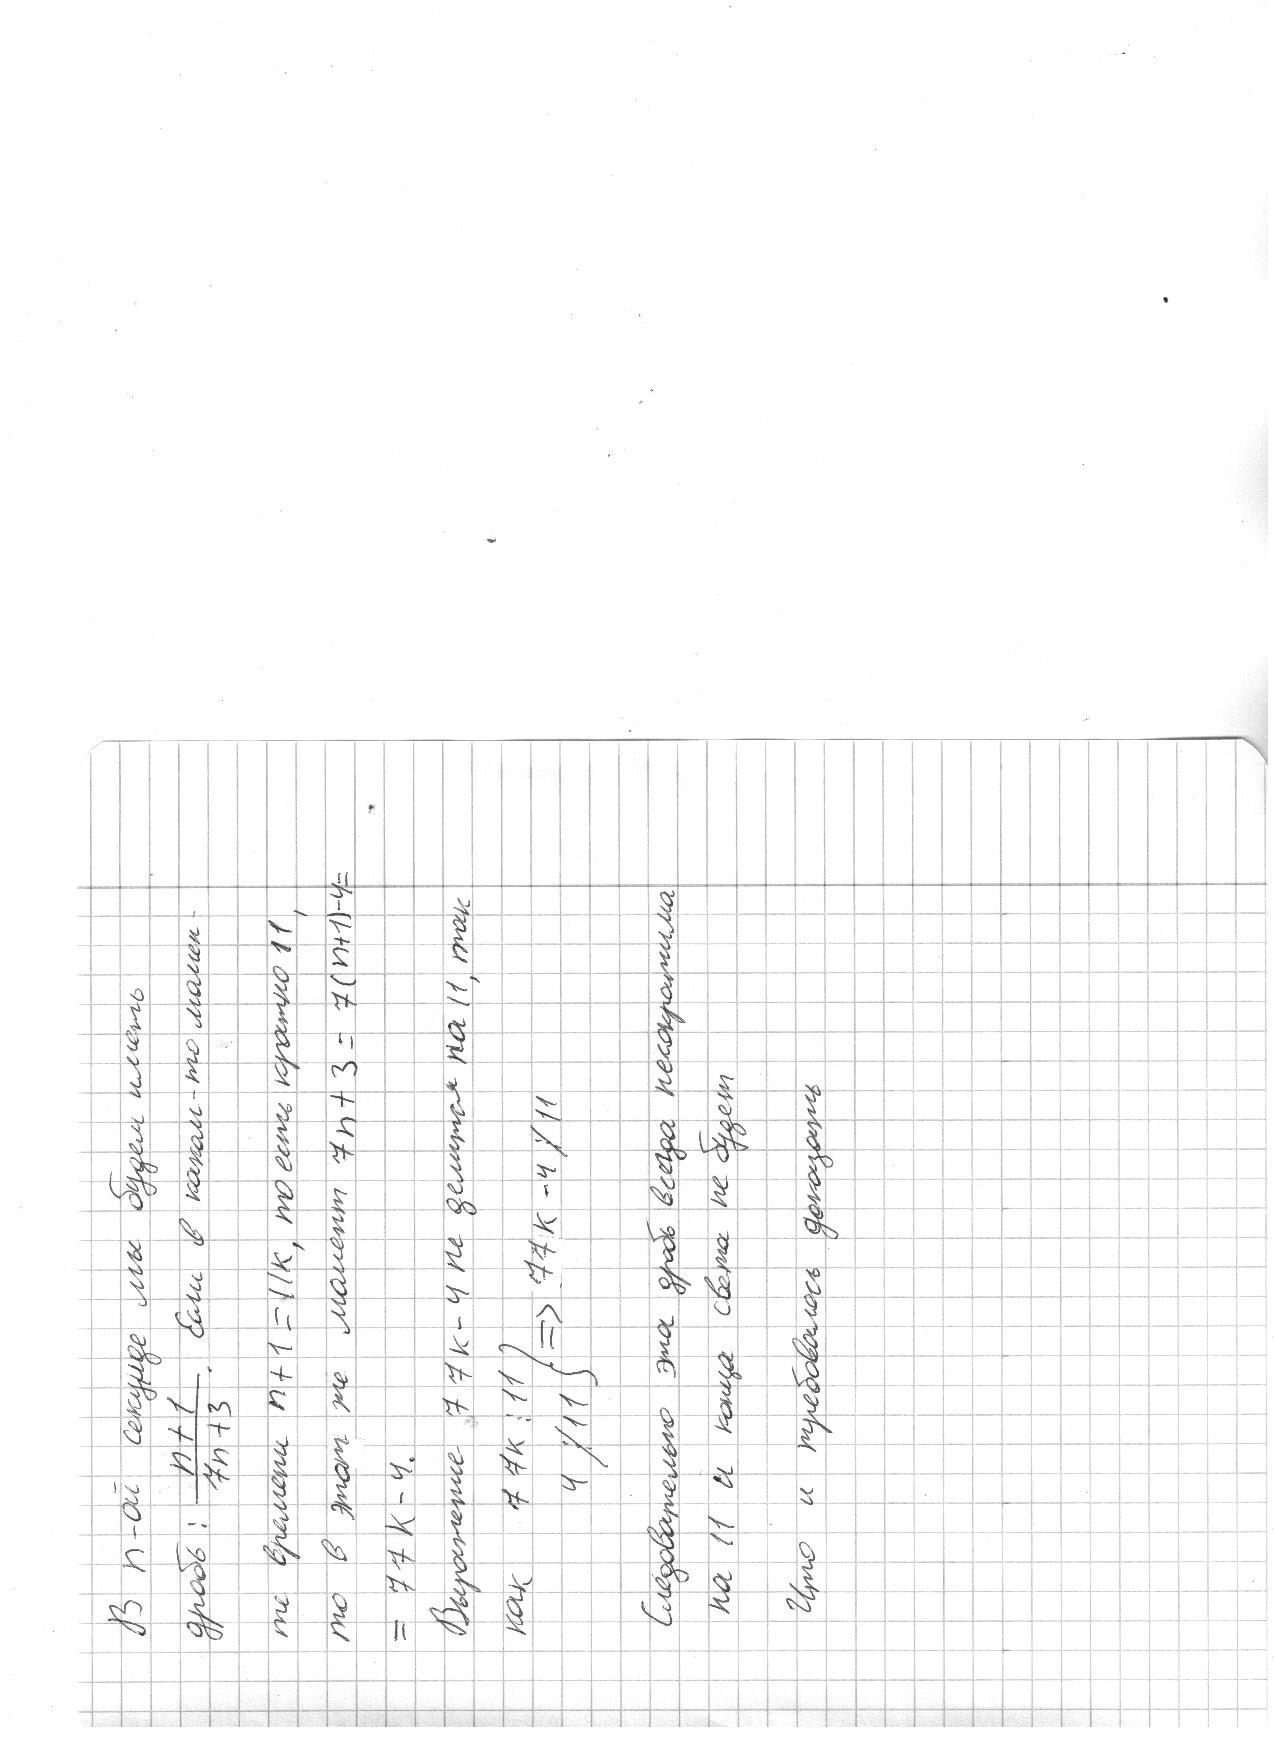 В n-ой секунде мы будем иметь
дробь: \frac{n+1}{7n+3}. Если в каком-то момен-
те времени n+1=11k, то есть кратно 11,
то в этот же момент 7n+3=7(n+1)-4=
=77k-4.
Выражение 77k-4 не делится на 11, так
как 77k⋮11
4⋮̸11 } => 77k-4⋮̸11
Следовательно эта дробь всегда несократима
на 11 и конца света не будет
Что и требовалось доказать